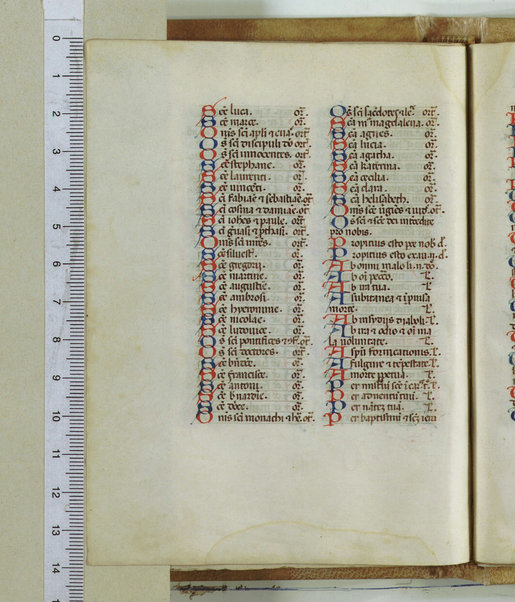 Sce luca. or.
Sce marce. or.
Omīs sci apli ⁊ euā. or.
Os sci discipuli dō or.
Os sci innocentes. or.
Sce stephane. or.
Sce laurenti. or.
Sce uincēti. or.
Sci fabiāe ⁊ sebastiāe. or.
Sci cosma ⁊ damiāe. or.
Sci iohes ⁊ paule. or.
Sci gruasi ⁊ ꝓthasi. or.
Omīs sci mres. or.
Sce siluestr. or.
Sce gregorii. or.
Sce martine. or.
Sce augustie. or.
Sce ambrosi. or.
Sce hyeronime. or.
Sce nicolae. or.
Sce ludouice. or.
Os sci pontifices ⁊ ꝯf. or.
Os sci doctores. or.
Sce bn̄dce. or.
Sce francisce. or.
Sce antoni. or.
Sce bnardie. or.
Sce dōice. or.
Omīs sci monachi ⁊ her. or.
Os sci sacdotes ⁊ le. or.
Sca mᵃ magdalena. or.
Sca agnes. or.
Sca lucia. or.
Sca agatha. or.
Sca katerina. or.
Sca cecilia. or.
Sca clara. or.
Sca helisabeth. or.
Omīs sce ūgies ⁊ uid. or.
Os sci ⁊ sce dei intcedite
pro nobis.
Propitius esto pce nob d.
Propitius esto ex. nos d.
Ab omni malo li. n. dō.
Ab oi pcco. l.
Ab ira tua. l.
A subitanea ⁊ īprouisa
morte. l.
Ab insidiis diaboli. l.
Ab ira ⁊ odio ⁊ oi ma
la uoluntate. l.
A spū fornicationis. l.
A fulgure ⁊ tēpestate. l.
A morte ꝑpetua. l.
Per misteriū sce īcar. t. l.
Per aduentū tuū. l.
Per natiuitē tuā. l.
Per baptismū ⁊ scm ieiu